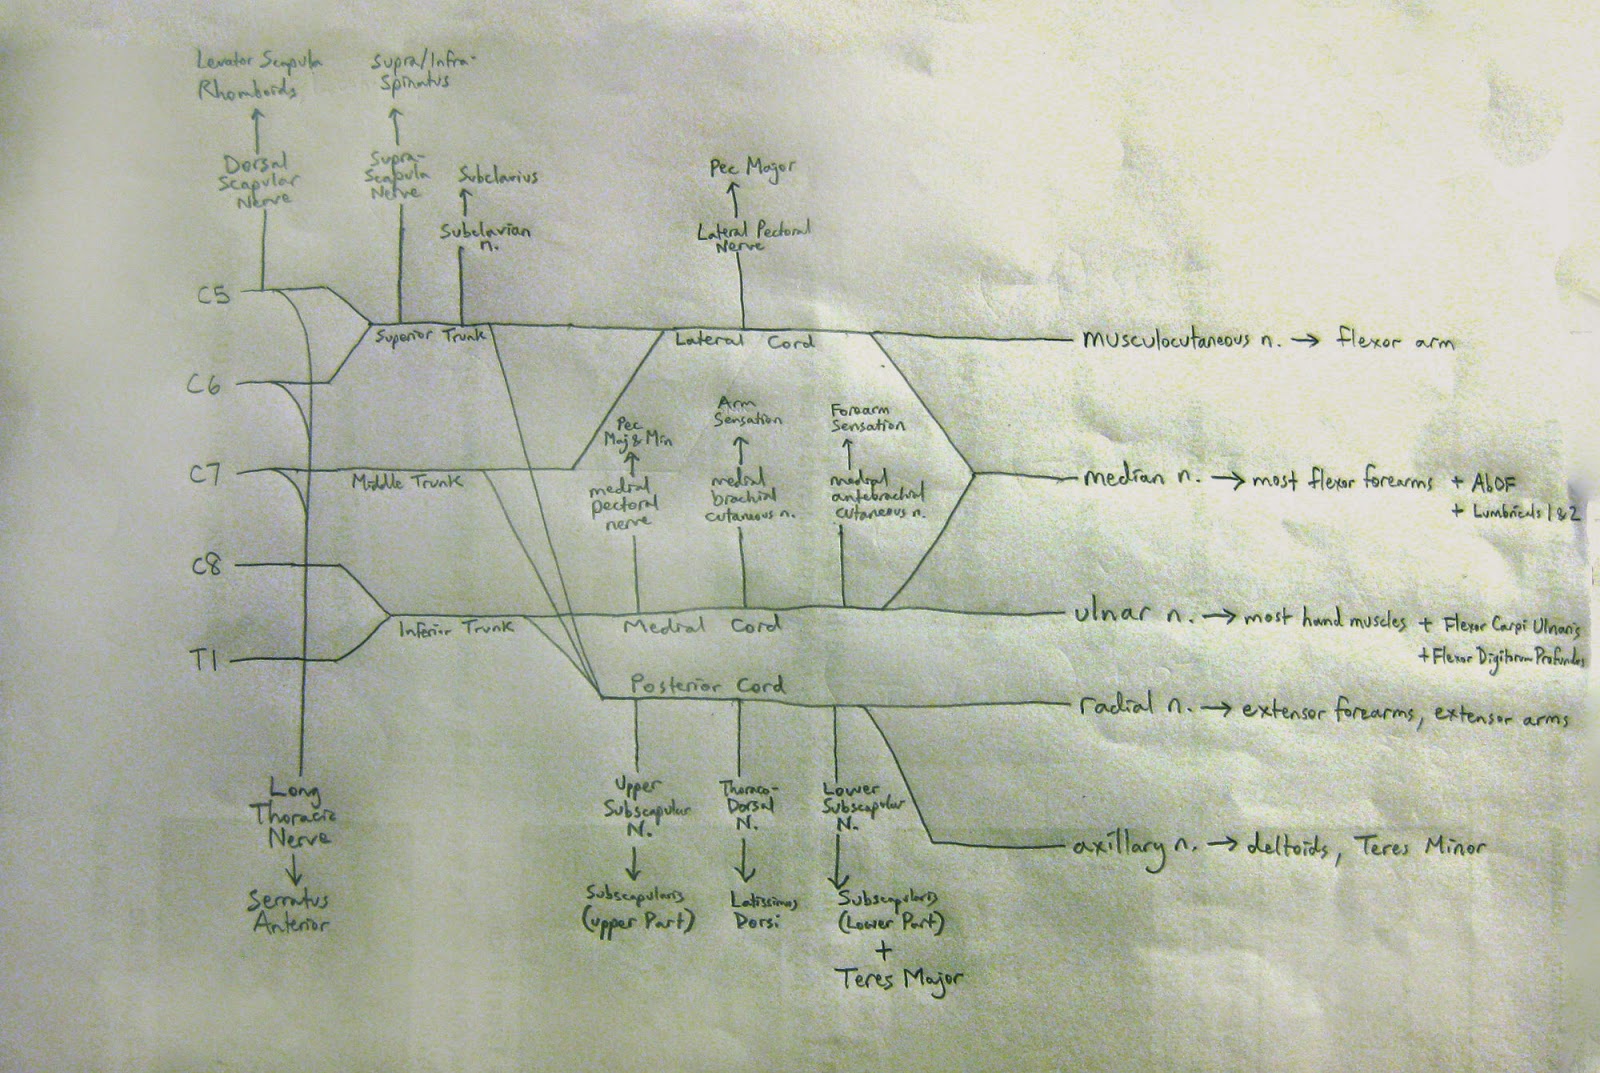 Levator Scapula
Rhomboids
Supra/Infra-
Spinatus
Dorsal
Scapular
Nerve
Supra-
Scapula
Nerve
Subclavius
Subclavian
n.
Pec Major
Lateral Pectoral
Nerve
C5
Superior Trunk
Lateral Cord
musculocutaneous n. → flexor arm
C6
Pec
Maj & Min
medial
pectoral
nerve
Arm
Sensation
medial
brachial
cutaneous n.
Forearm
Sensation
medial
antebrachial
cutaneous n.
C7
Middle Trunk
median n. → most flexor forearms + AbOF
+ Lumbricals 1 & 2
C8
Inferior Trunk
Medial Cord
ulnar n. → most hand muscles + Flexor Carpi Ulnaris
+ Flexor Digitorum Profundus
T1
Posterior Cord
radial n. → extensor forearms, extensor arms
Long
Thoracic
Nerve
Serratus
Anterior
Upper
Subscapular
N.
Subscapularis
(upper Part)
Thoraco-
Dorsal
N.
Latissimus
Dorsi
Lower
Subscapular
N.
Subscapularis
(Lower Part)
+
Teres Major
axillary n. → deltoids, Teres Minor